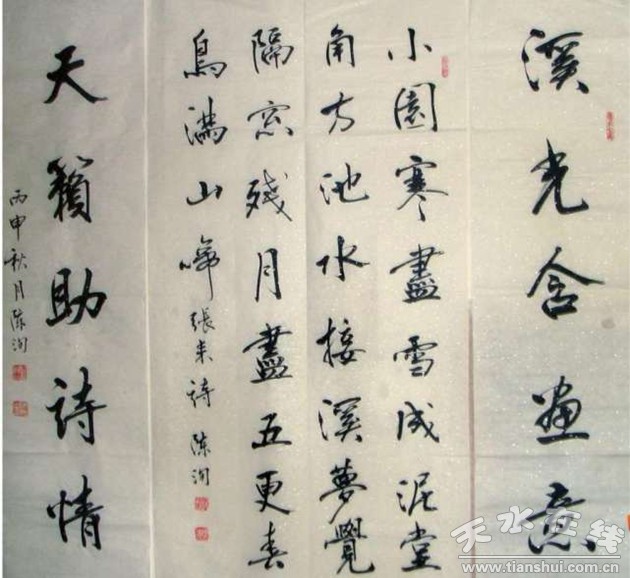 溪光含画意
小園寒盡雪成泥堂
角方池水接溪夢覺
隔窓残月盡五更春
鳥满山啼
張耒诗 陈洵
天籟助诗情
丙申秋月陈洵
天水在线
www.tianshui.com.cn